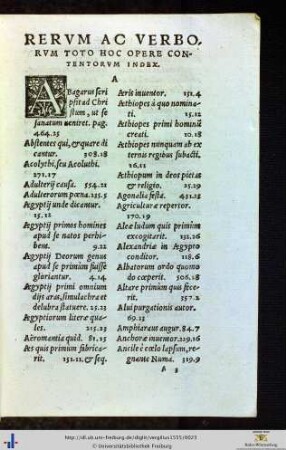 RERVM AC VERBO,
RVM TOTO HOC OPERE CON-
TENTORVM INDEX.
A
ABagarus scri
psit ad Chri
stum, ut se
sanatum ueniret. pag.
464.25
Abstentes qui, & quare di
cantur. 308.18
Acolythi, seu Acoluthi.
271.17
Adulterij causa. 554.21
Adulterorum pœna. 125.5
Aegyptij unde dicantur.
15.12
Aegyptij primos homines
apud se natos perhi-
bent. 9.22
Aegyptij Deorum genus
apud se primum fuisse
gloriantur. 4.24
Aegyptij primi omnium
dijs aras, simulachra et
delubra statuere. 25.23
Aegyptiorum literæ qua-
les. 25.23
Aëromantia quid. 81.15
Aes quis primum fabrica-
rit. 151.21. & seq.
Aeris inuentor. 151.4
Aethiopes à quo nomina-
ti. 15.12
Aethiopes primi hominū
creati. 10.18
Aethiopes nunquam ab ex
ternis regibus subacti.
16.11
Aethiopum in deos pietas
& religio. 25.29
Agonalia festa. 451.23
Agriculturæ repertor.
170.19
Aleæ ludum quis primùm
excogitarit. 151.26
Alexandriæ in Aegypto
conditor. 118.6
Albatorum ordo quomo
do cœperit. 508.28
Altare primùm quis fece
rit. 357.2
Alui purgationis autor.
69.23
Amphiaraus augur. 84.7
Anchoræ inuentor. 219.16
Ancile è cœlo lapsum, re-
gnante Numa. 319.9
A 2
http://dl.ub.uni-freiburg.de/diglit/vergilius1525/0023
© Universitätsbibliothek Freiburg